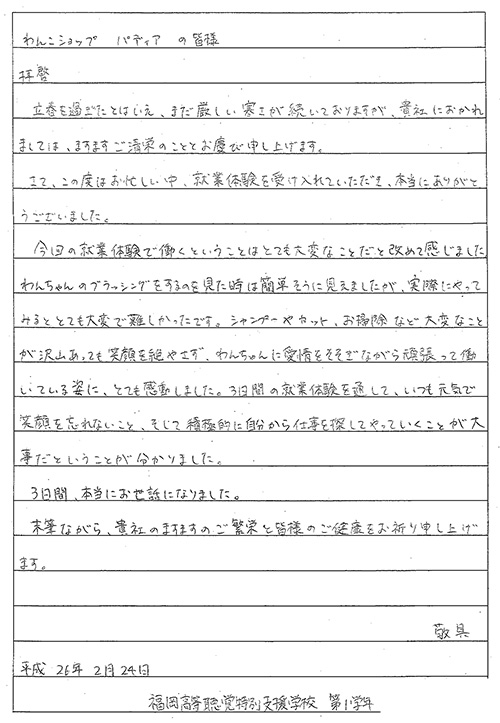 わんこショップ パディア の皆様
拝啓
立春を過ぎたとはいえ、まだ厳しい寒さが続いておりますが、貴社におかれ
ましては、ますますご清栄のこととお慶び申し上げます。
さて、この度はお忙しい中、就業体験を受け入れていただき、本当にありがと
うございました。
今回の就業体験で働くということはとても大変なことだと改めて感じました
わんちゃんのブラッシングをするのを見た時は簡単そうに見えましたが、実際にやって
みるととても大変で難しかったです。シャンプーやカット、お掃除など大変なこと
が沢山あっても笑顔を絶やさず、わんちゃんに愛情をそそぎながら頑張って働
いている姿に、とても感動しました。3日間の就業体験を通して、いつも元気で
笑顔を忘れないこと、そして積極的に自分から仕事を探してやっていくことが大
事だということが分かりました。
3日間、本当にお世話になりました。
末筆ながら、貴社のますますのご繁栄と皆様のご健康をお祈り申し上げ
ます。
敬具
平成 26年 2月 24日
福岡高等聴覚特別支援学校 第1学年